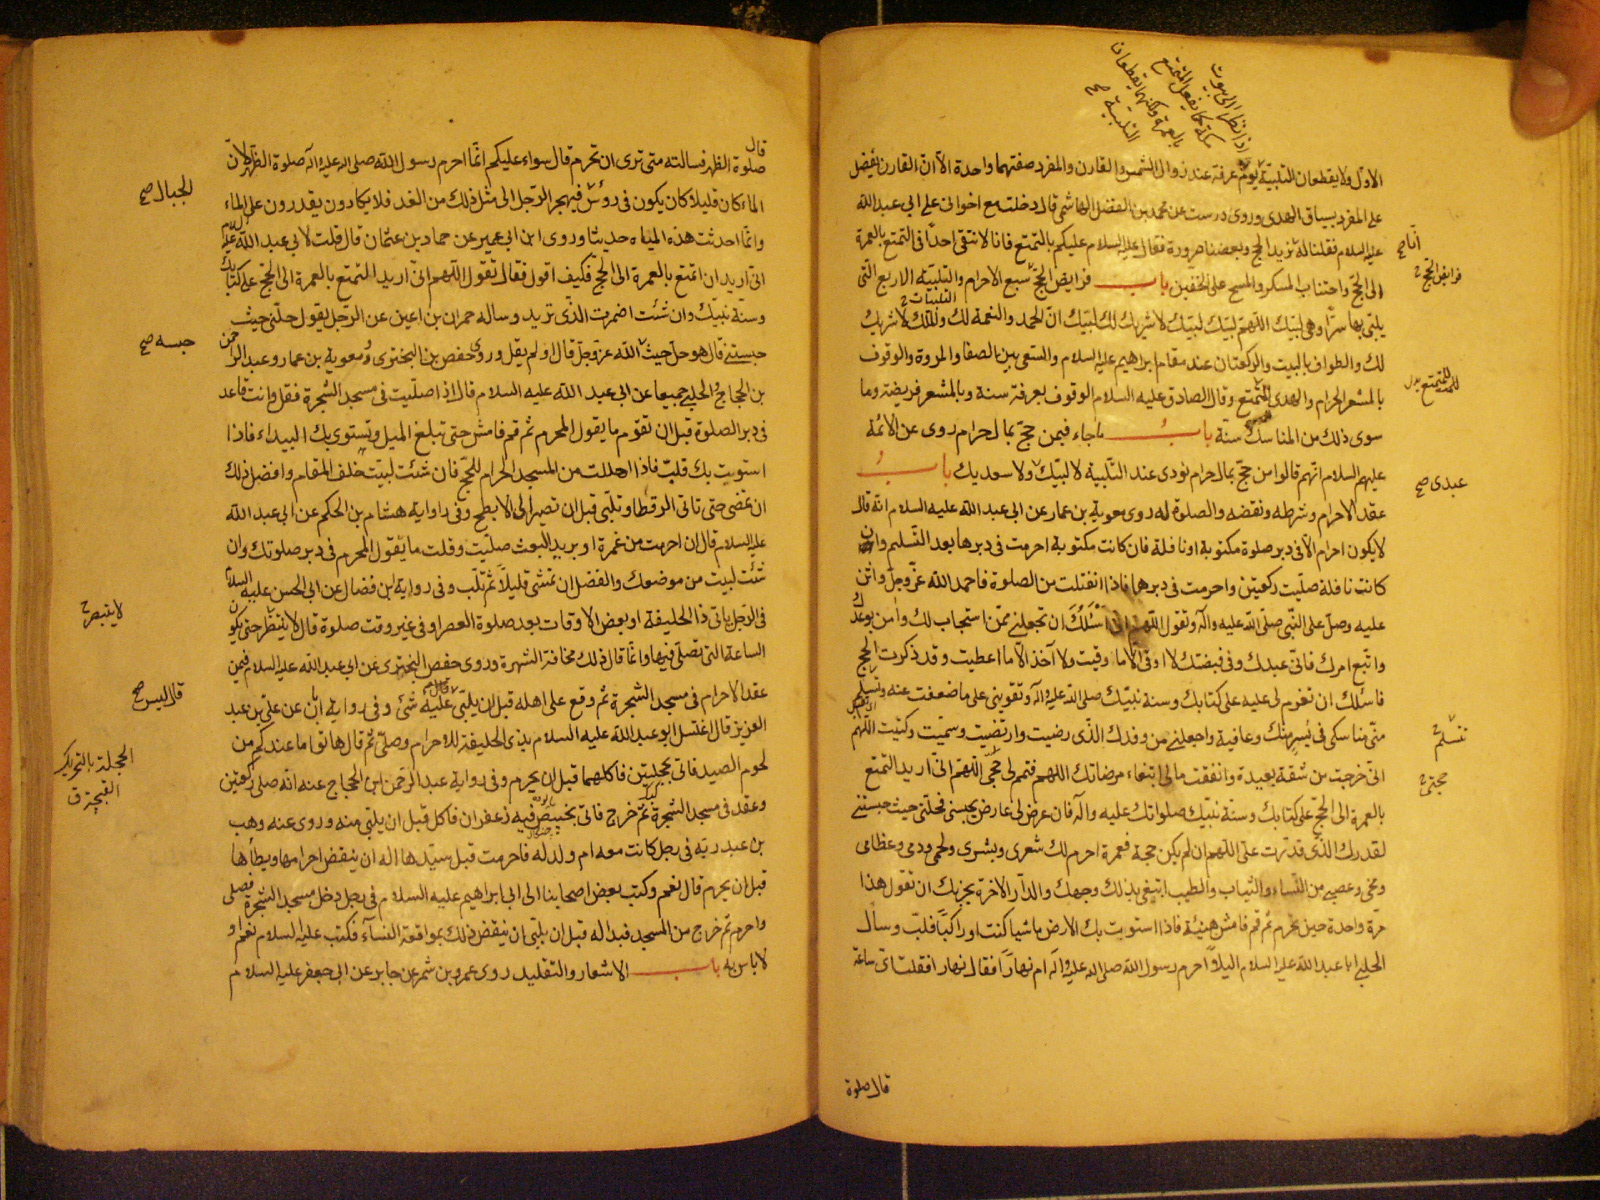 اذا نظرا الى بيوت
مكة كما يفعل المتمتع
بالعمرة ولكنهما يقطعان
التلبية صح
الاول ولا يقطعان التلبية يوم عرفة عند زوال الشمس والقارن والمفرد صفتهما واحدة الا ان القارن يفضل
على المفرد بسياق الهدى وروى درست عن محمد بن الفضل الهاشمى قال دخلت مع اخواتى على ابى عبد الله
عليه السلام فقلنا له نريد الحج وبعضنا صرورة فقال عليه السلام عليكم بالتمتع فانا لا نتقى احدا فى التمتع بالعمرة
انا صح
الى الحج واجتناب المسكر والمسح على الخفين باب فرايض الحج سبع الاحرام والتلبية الاربع التى
فرايض الحج
التلبيات
يلبى بها سرا وهى لبيك اللهم لبيك لبيك لا شريك لك لبيك ان الحمد والنعمة لك والملك لا شريك
لك والطواف بالبيت والركعتان عند مقام ابراهيم عليه السلام والسعى بين الصفا والمروة والوقوف
بالمشعر الحرام والهدى للمتمتع وقال الصادق عليه السلام الوقوف بعرفة سنة وبالمشعر فريضة وما
سوى ذلك من المناسك سنة باب ما جاء فيمن حج بمال حرام روى عن الائمة
عليهم السلام انهم قالوا من حج بمال حرام نودى عند التلبية لا لبيك ولا سعديك باب
عبدى صح
عقد الاحرام وشرطه ونقضه والصلوة له روى معوية بن عمار عن ابى عبد الله عليه السلام انه قال
لا يكون احرام الا فى دبر صلوة مكتوبة او نافلة فان كانت مكتوبة احرمت فى دبرها بعد التسليم وان
كانت نافلة صليت ركعتين واحرمت فى دبرها فاذا انفتلت من الصلوة فاحمد الله عز وجل واثن
عليه وصل على النبى صلى الله عليه وآله وتقول اللهم انى اسئلك ان تجعلنى ممن استجاب لك وامن بوعدك
واتبع امرك فانى عبدك وفى قبضتك لا اوقى الا ما وقيت ولا آخذ الا ما اعطيت وقد ذكرت الحج
فاسئلك ان تعزم لى عليه على كتابك وسنة نبيك صلى الله عليه وآله وتقوينى على ما ضعفت عنه وتسلم
منى مناسكى فى يسر منك وعافية واجعلنى من وفدك الذى رضيت وارتضيت وسميت وكتبت اللهم
تتسلم
انى خرجت من شقة بعيدة وانفقت مالى ابتغاء مرضاتك اللهم فتمم لى حجى اللهم انى اريد التمتع
حجتى
بالعمرة الى الحج على كتابك وسنة نبيك صلواتك عليه وآله فان عرض لى عارض يحبسنى فحلنى حيث حبستنى
لقدرك الذى قدرت على اللهم ان لم يكن حجة فعمرة احرم لك شعرى وبشرى ولحمى ودمى وعظامى
ومخى وعصبى من النساء والثياب والطيب ابتغى بذلك وجهك والدار الآخرة يجزيك ان تقول هذا
مرة واحدة حين تحرم ثم قم فامش هنيئة فاذا استوت بك الارض ماشيا كنت او راكبا فلب وسأل
الحلبى ابا عبد الله عليه السلام اليلا احرم رسول الله صلى الله عليه وآله ام نهارا فقال نهارا فقلت اى ساعة
قال صلوة
قال
صلوة الظهر فسالته متى ترى ان تحرم قال سواء عليكم انما احرم رسول الله صلى الله عليه وآله صلوة الظهر لان
الماء كان قليلا كان يكون فى رؤس فيهجر الرجل الى مثل ذلك من الغد فلا يكادون يقدرون على الماء
الجبال صح
وانما احدثت هذه المياه حديثا وروى ابن ابى عمير عن حماد بن عثمان قال قلت لابى عبد الله عليه السلم
انى اريد ان اتمتع بالعمرة الى الحج فكيف اقول فقال تقول اللهم انى اريد المتمتع بالعمرة الى الحج على كتابك
وسنة نبيك وان شئت اضمرت الذى تريد وساله حمران بن اعين عن الرجل يقول حلنى حيث
حبستنى قال هو حل حيث الله عز وجل قال او لم يقل وروى حفص بن البخترى ومعوية بن عمار وعبد الرحمن
حبسه صح
بن الحجاج والحلبى جميعا عن ابى عبد الله عليه السلام قال اذا صليت فى مسجد الشجرة فقل وانت قاعد
فى دبر الصلوة قبل ان تقوم ما يقول المحرم ثم قم فامش حتى تبلغ الميل وتستوى بك البيداء فاذا
استوت بك فلب فاذا اهللت من المسجد الحرام للحج فان شئت لبيت خلف المقام وافضل ذلك
ان تمضى حتى تاتى الرقطا وتلبى قبل ان تصير الى الابطح وفى رواية هشام بن الحكم عن ابى عبد الله
عليه السلام قال ان احرمت من غمرة او بريد البعث صليت وقلت ما يقول المحرم فى دبر صلوتك وان
شئت لبيت من موضعك والفضل ان تمشى قليلا ثم تلب وفى رواية ابن فضال عن ابى الحسن عليه السلام
فى الرجل ياتى ذا الحليفة او بعض الاوقات بعد صلوة العصر او فى غير وقت صلوة قال لا ينتظر حتى يكون
الساعة التى تصلى فيها وانما قال ذلك مخافة الشهرة وروى حفص بن البخترى عن ابى عبد الله عليه السلام فيمن
عقد الاحرام فى مسجد الشجرة ثم وقع على اهله قبل ان يلبى عليه شئ وفى رواية ابان عن على بن عبد
قال ليس صح
العزيز قال اغتسل ابو عبد الله عليه السلام بذى الحليفة للاحرام وصلى ثم قال هاتوا ما عندكم من
لحوم الصيد فاتى بحجلتين فاكلهما قبل ان يحرم وفى رواية عبد الرحمن ابن الحجاج عنه انه صلى ركعتين
الحجلة بالتحريك
القبجة ق
وعقد فى مسجد الشجرة ثم خرج فاتى بخبيص فيه زعفران فاكل قبل ان يلبى منه وروى عنه وهب
بن عبد ربه فى رجل كانت معه ام ولد له فاحرمت قبل سيدها اله ان ينقض احرامها ويطأها
قبل ان يحرم قال نعم وكتب بعض اصحابنا الى ابى ابراهيم عليه السلام فى رجل دخل مسجد الشجرة فصلى
واحرم ثم خرج من المسجد فبدا له قبل ان يلبى ان ينقض ذلك بمواقعة النساء فكتب عليه السلام نعم او
لا باس به باب الاشعار والتقليد روى عمرو بن شمر عن جابر عن ابى جعفر عليه السلام